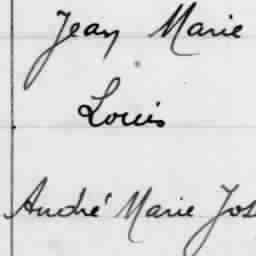 Jean Marie
Louis
André Marie Jos